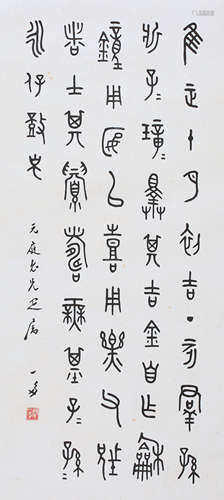 隹正十月初吉丁亥群孫
斨子子璋擇其吉金自作龢
鐘用匽以喜用樂父兄
者士其眉壽無基子子孫孫
永保鼓之
一多